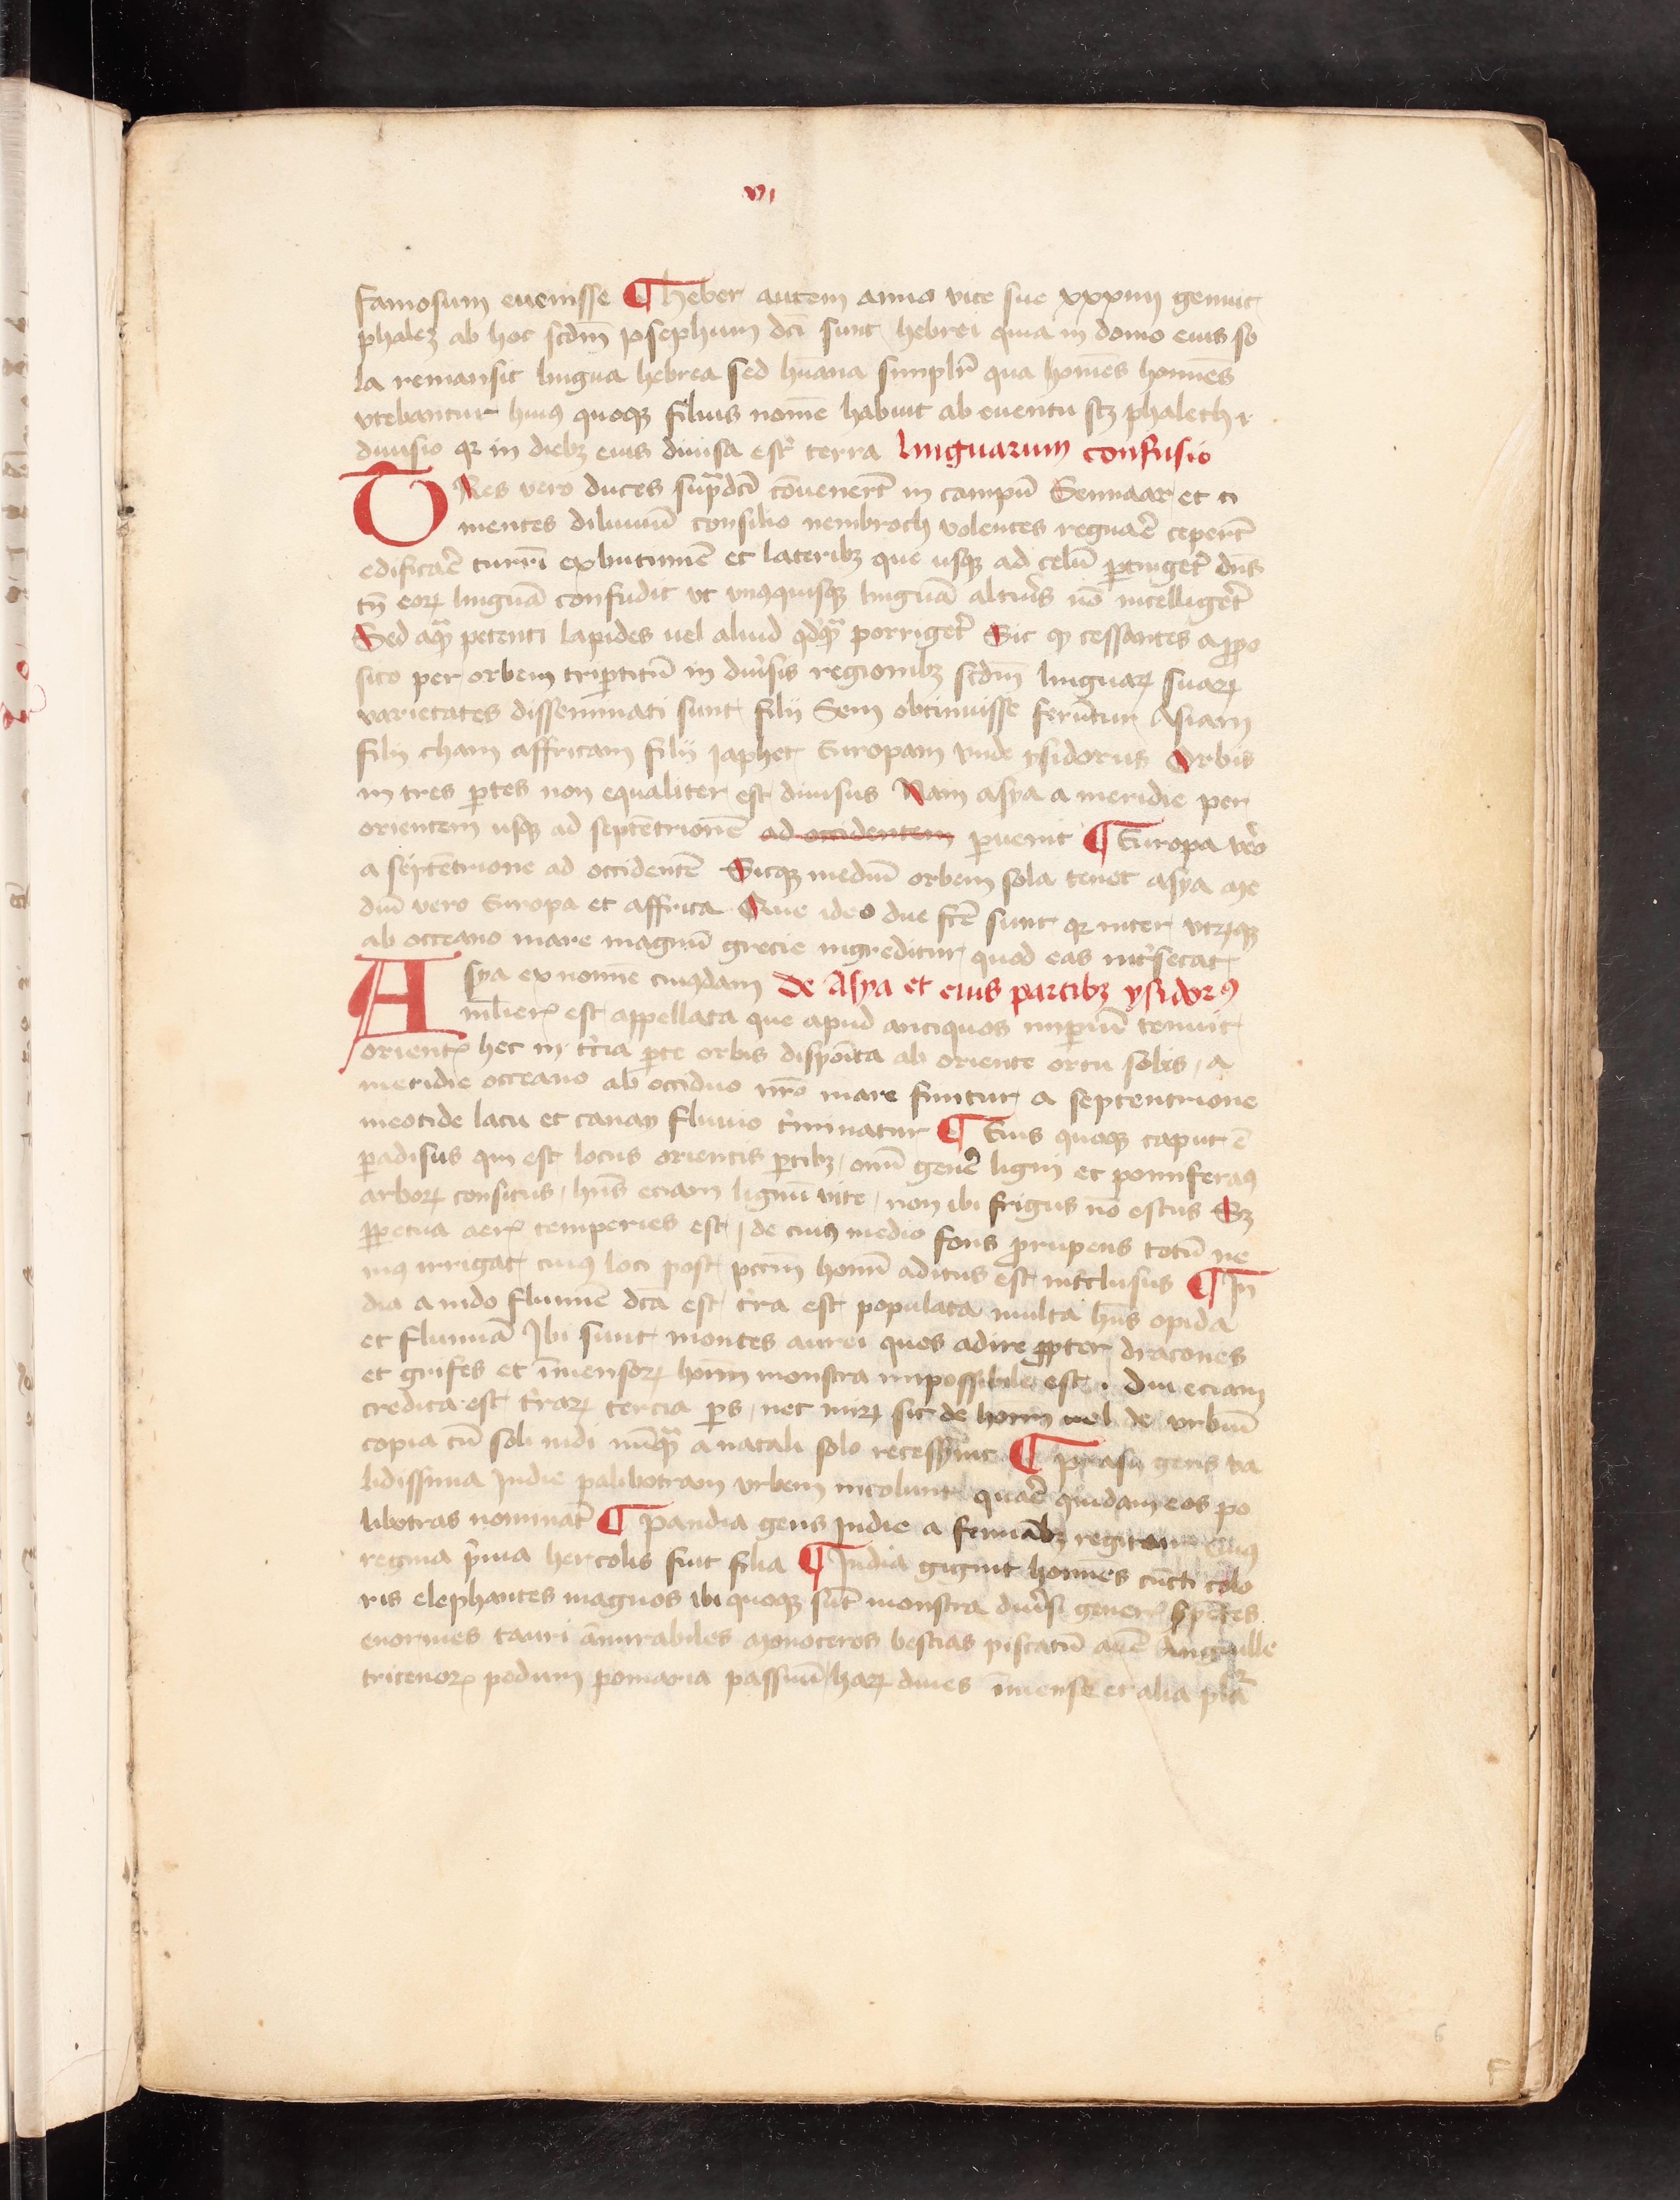 vi
famosum euenisse ¶ heber autem anno vite sue xxxiiii genuit
phalez ab hoc scdm̄ Josephum dc̄i sunt hebrei quia in domo eius so
la remansit lingua hebrea sed hūana simplr̄ qua homēs homnēs
vtebantur huiꝰ quoqꝫ filius nomē habuit ab euentu scꝫ phalech i
diuisio qꝛ in diebꝫ eius diuisa est terra linguarum confusio
TRes vero duces sup̄adc̄i cōuenert̄ in campū Sennaar et ti
mentes diluuiū consilio nembroch volentes regnar̄e ceper̄t
edificar̄e turrī ex bitumīe et lateribꝫ que usqꝫ ad celū ꝑtinger̄t dn̄s
tn̄ eoꝝ linguā confudit vt vnꝰquisqꝫ linguā alteriꝰ nō intelliger̄t
Sed aqͣꝫ petenti lapides uel aliud qͥdqͣꝫ porriger̄t Sic qꝫ cessantes a ꝓpo
sito per orbem triꝑtitū in diuẽsis regionibꝫ scdm̄ linguaꝝ suaꝝ
varietates disseminati sunt filii Sem obtinuisse ferūtur Asiam
filii cham affricam filii iaphet Europam vnde ysidorus Orbis
in tres ꝑtes non equaliter est diuisus Nam asya a meridie per
orientem usqꝫ ad septētrionē ad occidentem ꝑuenit ¶ Europa ver̄o
a septētrione ad occidentē Sicqꝫ mediū orbem sola tenet asya me
diū vero Europa et affrica Que ideo due fc̄e sunt qꝛ inter vtrꝫqꝫ
ab occeano mare magnū grecie ingreditur quod eas int̄secat
Asya ex nomīe cuiꝰdam de Asya et eius partibꝫ ysidorꝰ
ml̄ieꝝ est appellata que apud antiquos imꝑiū tenuit
orientꝭ hec in t̄cia ꝑte orbis disposita ab oriente ortu solis a
meridie occeano ab occiduo nr̄o mare finitur a septentrione
meotide lacu et tanay fluuio t̄minatur ¶ Eius quoqꝫ caput ē
ꝑadisus qui est locus orientis ꝑtibꝫ omī gener̄e ligni et pomiferaꝝ
arboꝝ consitus hn̄s eciam lignū vite non ibi frigus nō estus Sꝫ
ꝑpetua aerꝭ temperies est de cuiꝰ medio fons ꝓrupens totū ne
mꝰ irrigat cuiꝰ loci post pctm̄ homīs aditus est int̄clusus ¶ In
dia a indo flumīe dc̄a est t̄ra est populata multa hn̄s opida
et flumīa Ibi sunt montes aurei quos adire ꝓpter dracones
et grifes et īmensoꝝ homīm monstra impossibile est diu eciam
credita est t̄raꝝ tercia ꝑs nec miꝝ sit de homīm uel de vrbiū
copia cū soli indi nūqͣꝫ a natali solo recesserint ¶ prasii gens va
lidissima Indie palibotram vrbem incolunt quar̄e quidam eos po
libotras nominat̄ ¶ Pandia gens Indie a femīabꝫ regitur cuiꝰ
regina pͥma hercolis fuit filia ¶ India gignit homīes tincti colo
ris elephantes magnos ibi quoqꝫ sūt monstra diuẽsi generꝭ serpētes
enormes tauri āmirabiles monoceros bestias piscatū auē anguille
tricenoꝝ pedum pomaria passiuū haꝝ diues īmense et alia plur̄a
6
F